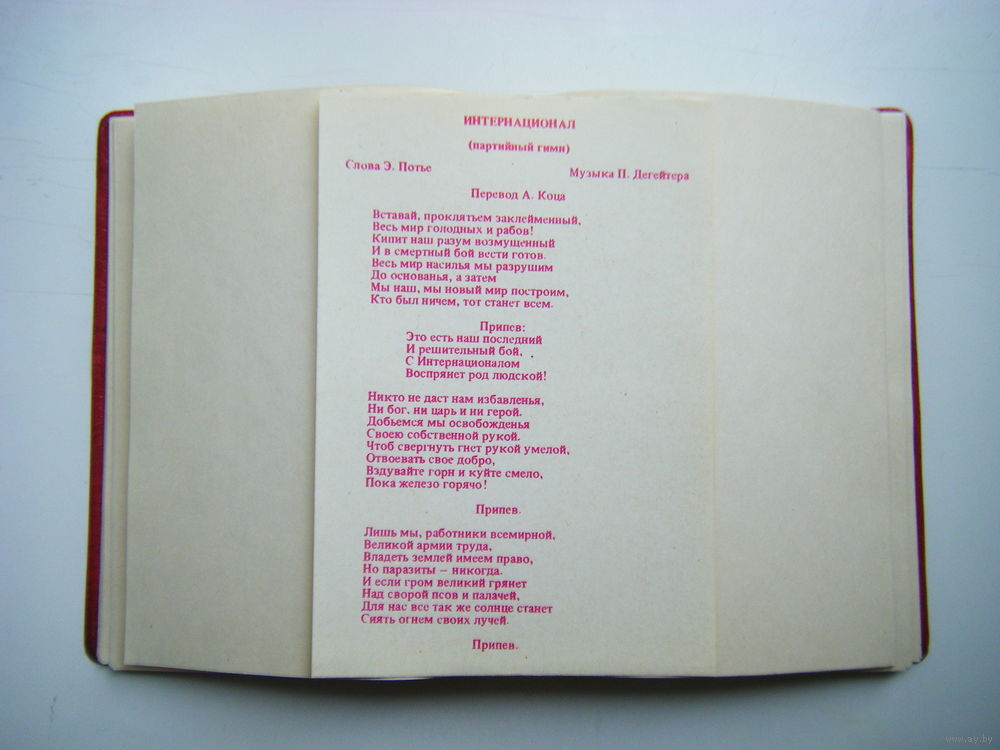 ИНТЕРНАЦИОНАЛ
(партийный гимн)
Слова Э. Потье
Музыка П. Дегейтера
Перевод А. Коца
Вставай, проклятьем заклейменный,
Весь мир голодных и рабов!
Кипит наш разум возмущенный
И в смертный бой вести готов.
Весь мир насилья мы разрушим
До основанья, а затем
Мы наш, мы новый мир построим,
Кто был ничем, тот станет всем.
Припев:
Это есть наш последний
И решительный бой,
С Интернационалом
Воспрянет род людской!
Никто не даст нам избавленья,
Ни бог, ни царь и ни герой.
Добьемся мы освобожденья
Своею собственной рукой.
Чтоб свергнуть гнет рукой умелой,
Отвоевать свое добро,
Вздувайте горн и куйте смело,
Пока железо горячо!
Припев.
Лишь мы, работники всемирной,
Великой армии труда,
Владеть землей имеем право,
Но паразиты – никогда.
И если гром великий грянет
Над сворой псов и палачей,
Для нас все так же солнце станет
Сиять огнем своих лучей.
Припев.
www.ay.by